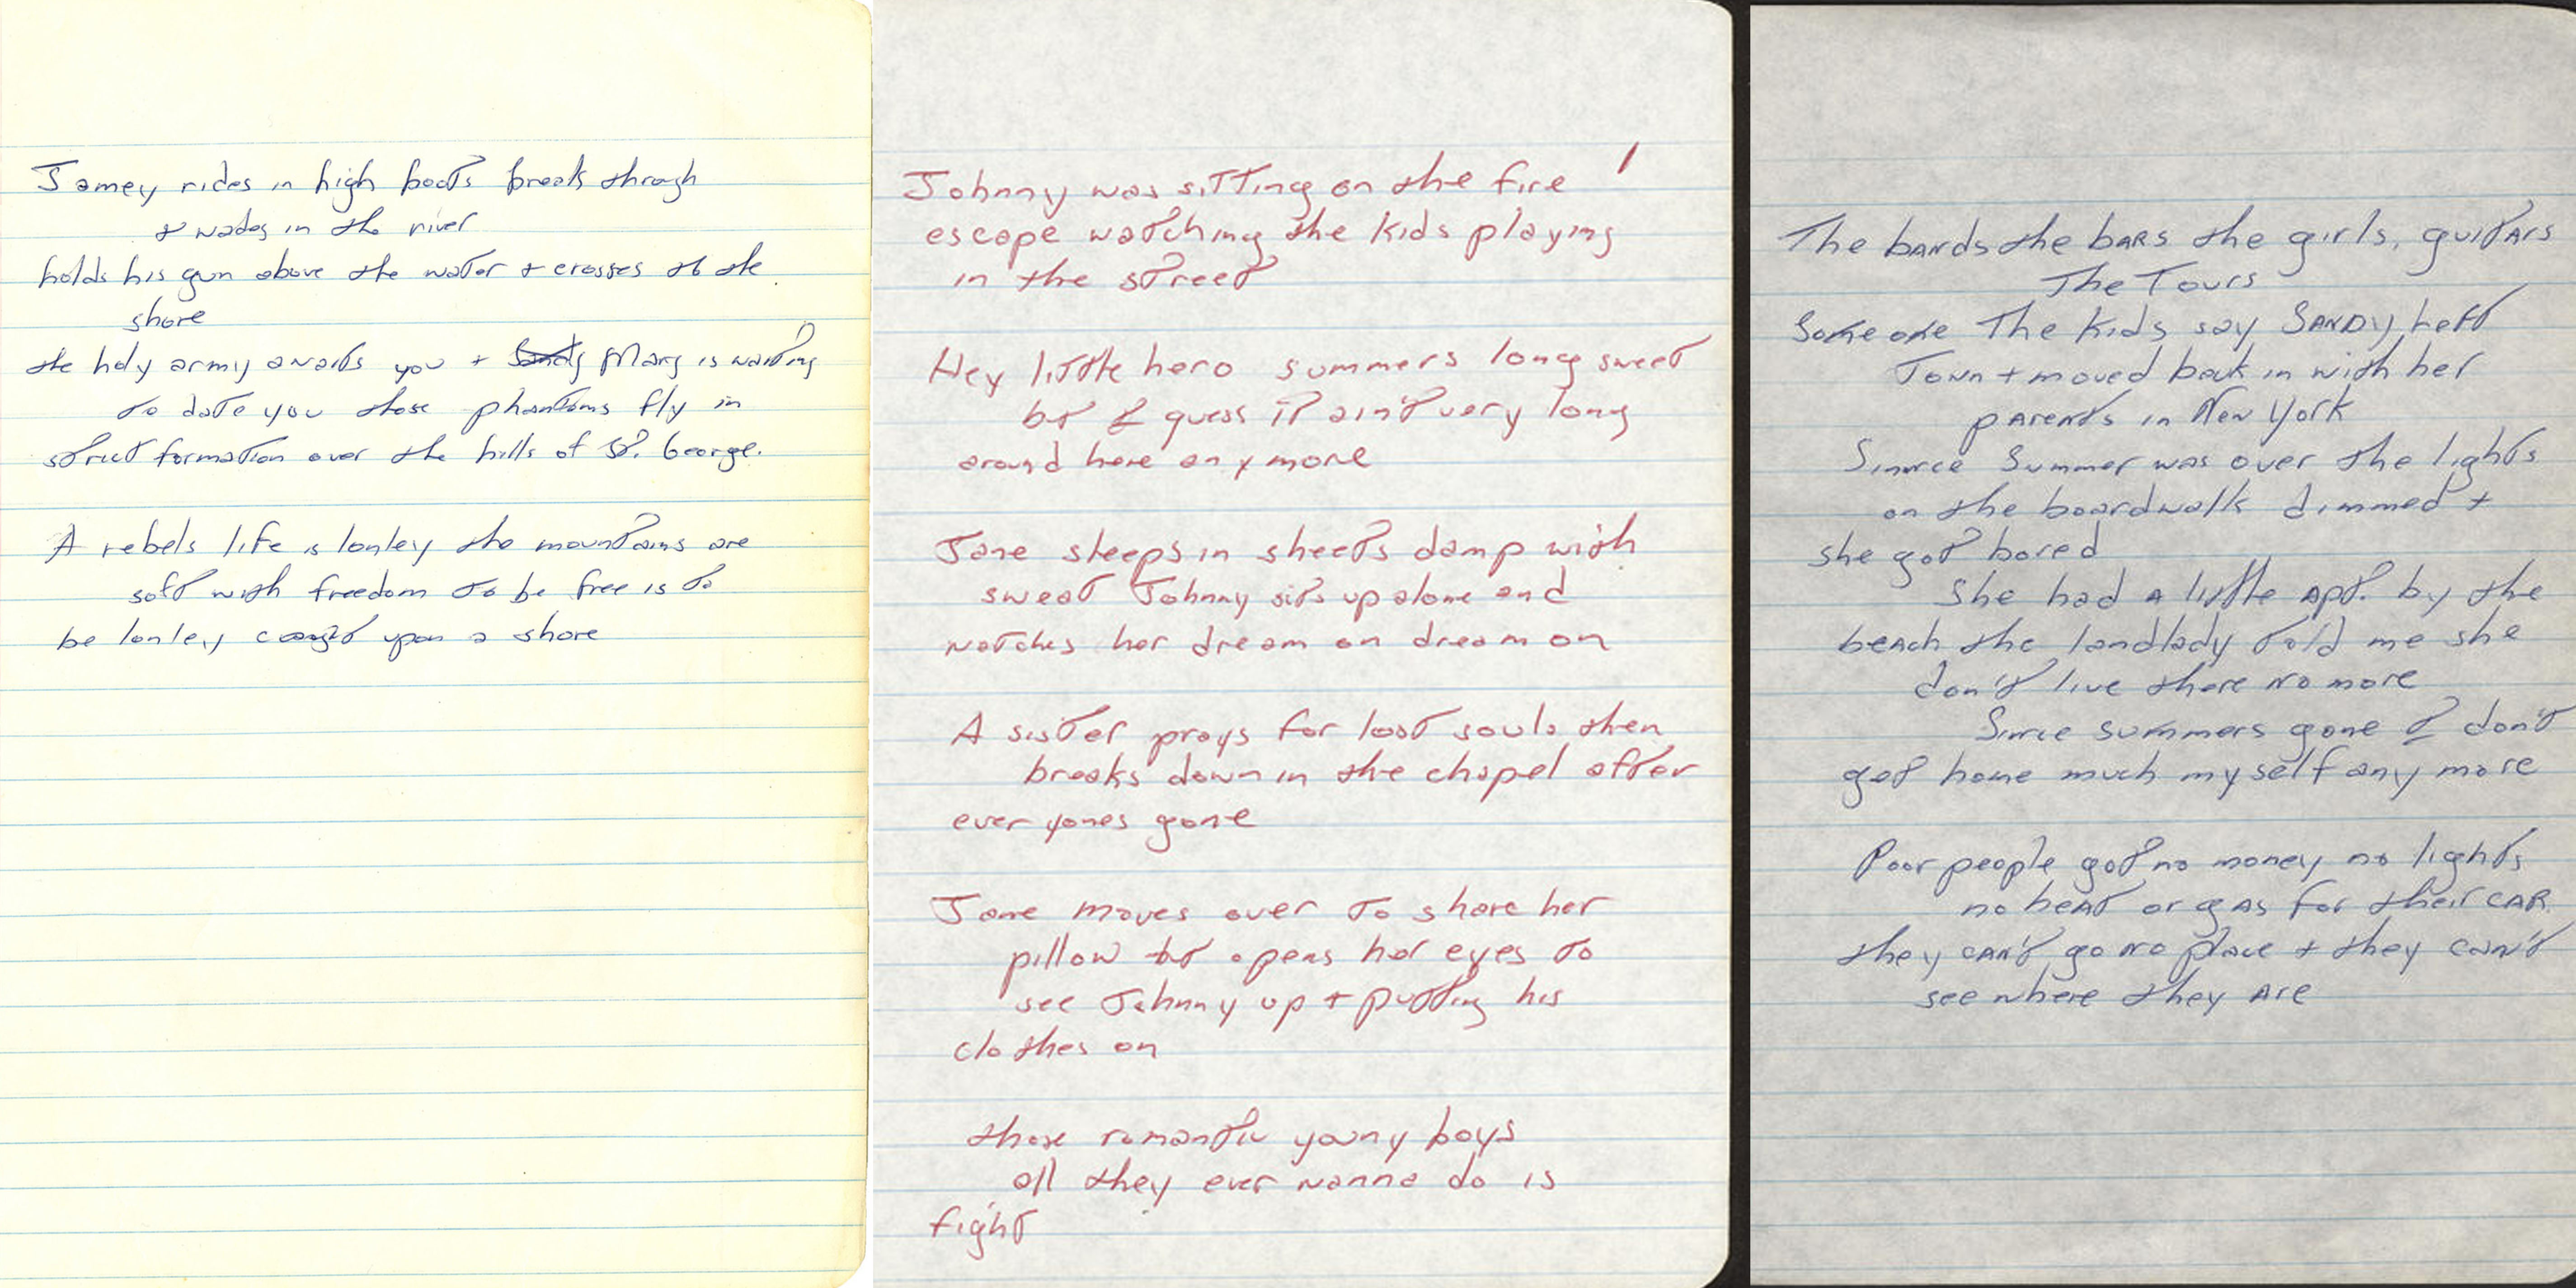 Jamey rides in high boots breaks through
& wades in the river
holds his gun above the water + crosses at the
shore
the holy army awaits you + Sandy Mary is waiting
to date you those phantoms fly in
strict formation over the hills of St. George.
A rebels life is lonley the mountains are
soft with freedom to be free is to
be lonley caught upon a shore
1
Johnny was sitting on the fire
escape watching the kids playing
in the street
Hey little hero summers long sweet
but I guess it ain't very long
around here anymore
Jane sleeps in sheets damp with
sweat Johnny sits up alone and
watches her dream on dream on
A sister prays for lost souls then
breaks down in the chapel after
everyones gone
Jane moves over to share her
pillow but opens her eyes to
see Johnny up + putting his
clothes on
those romantic young boys
all they ever wanna do is
fight
The bands the bars the girls, guitars
The Tours
Some one The kids say SANDY left
Town + moved back in with her
parents in New York
Since Summer was over the lights
on the boardwalk dimmed +
she got bored
She had a little apt. by the
beach the landlady told me she
don't live there no more
Since summers gone I don't
get home much myself any more
Poor people got no money no lights
no heat or gas for their CAR
they can't go no place + they can't
see where they are